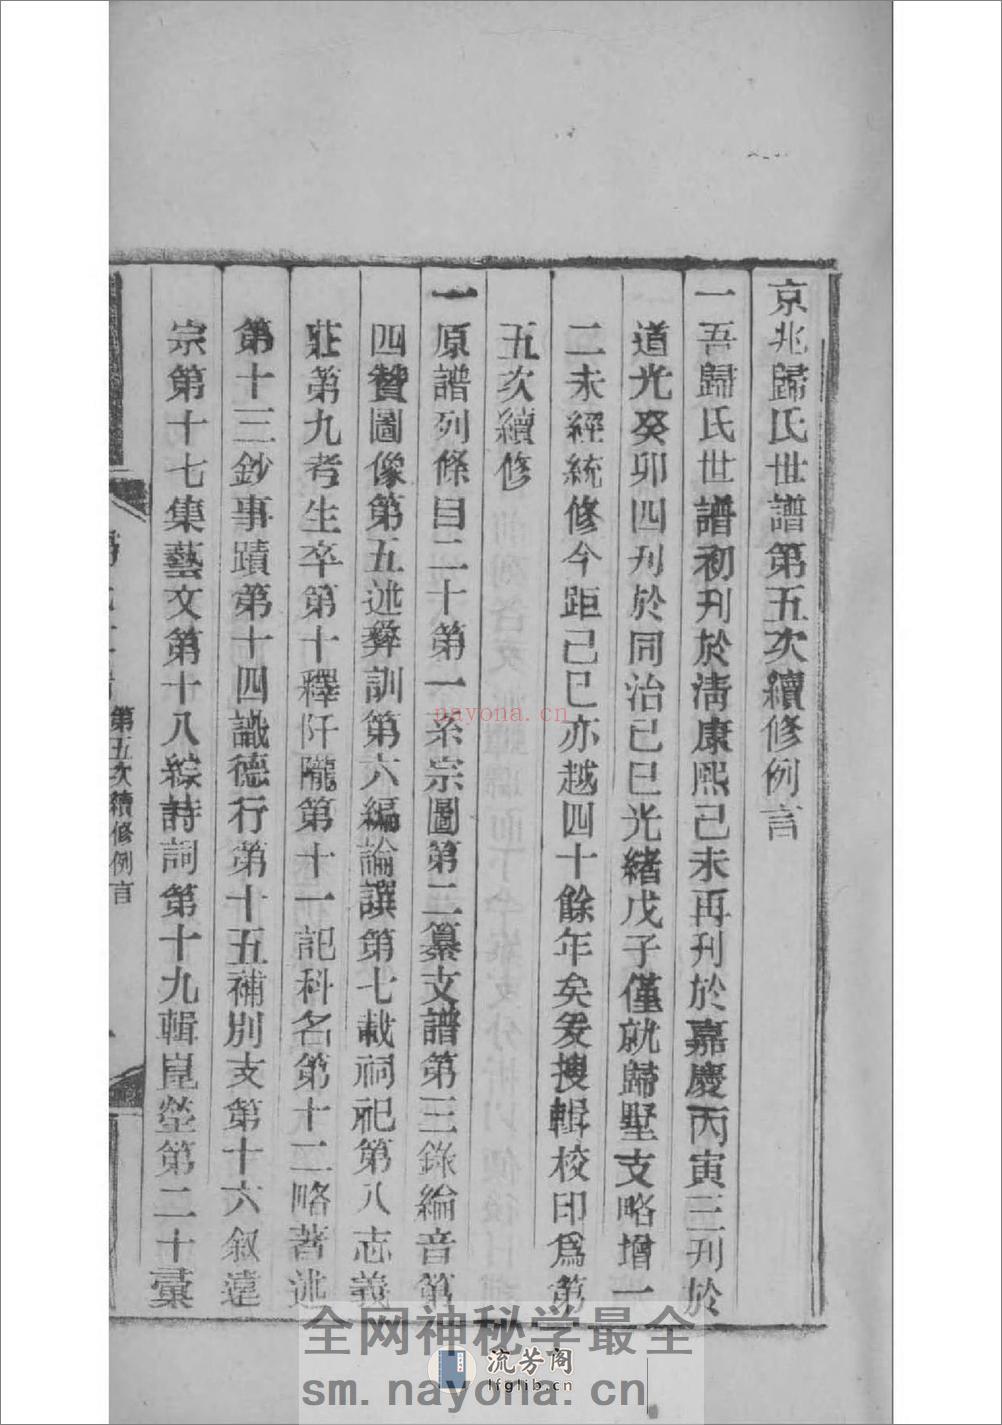 京兆歸氏世譜第五次續修例言
一吾歸氏世譜初刊於淸康熙己未再刊於嘉慶丙寅三刊於
道光癸卯四刊於同治己巳光緖戊子僅就歸墅支略增一
二未經統修今距己巳亦越四十餘年矣爰搜輯校印爲第
五次續修
一原譜列條目二十第一系宗圖第二纂支譜第三錄綸音第
四贊圖像第五述彝訓第六編論譔第七載祠祀第八志義
莊第九考生卒第十釋阡隴第十一記科名第十二略著述
第十三鈔事蹟第十四識德行第十五補別支第十六叙遠
宗第十七集藝文第十八綜詩詞第十九輯崑塋第二十彙
第五次續修例言
nayona.cn
全网神秘学最全
流芳阁
lfglib.cn
sm.nayona.cn